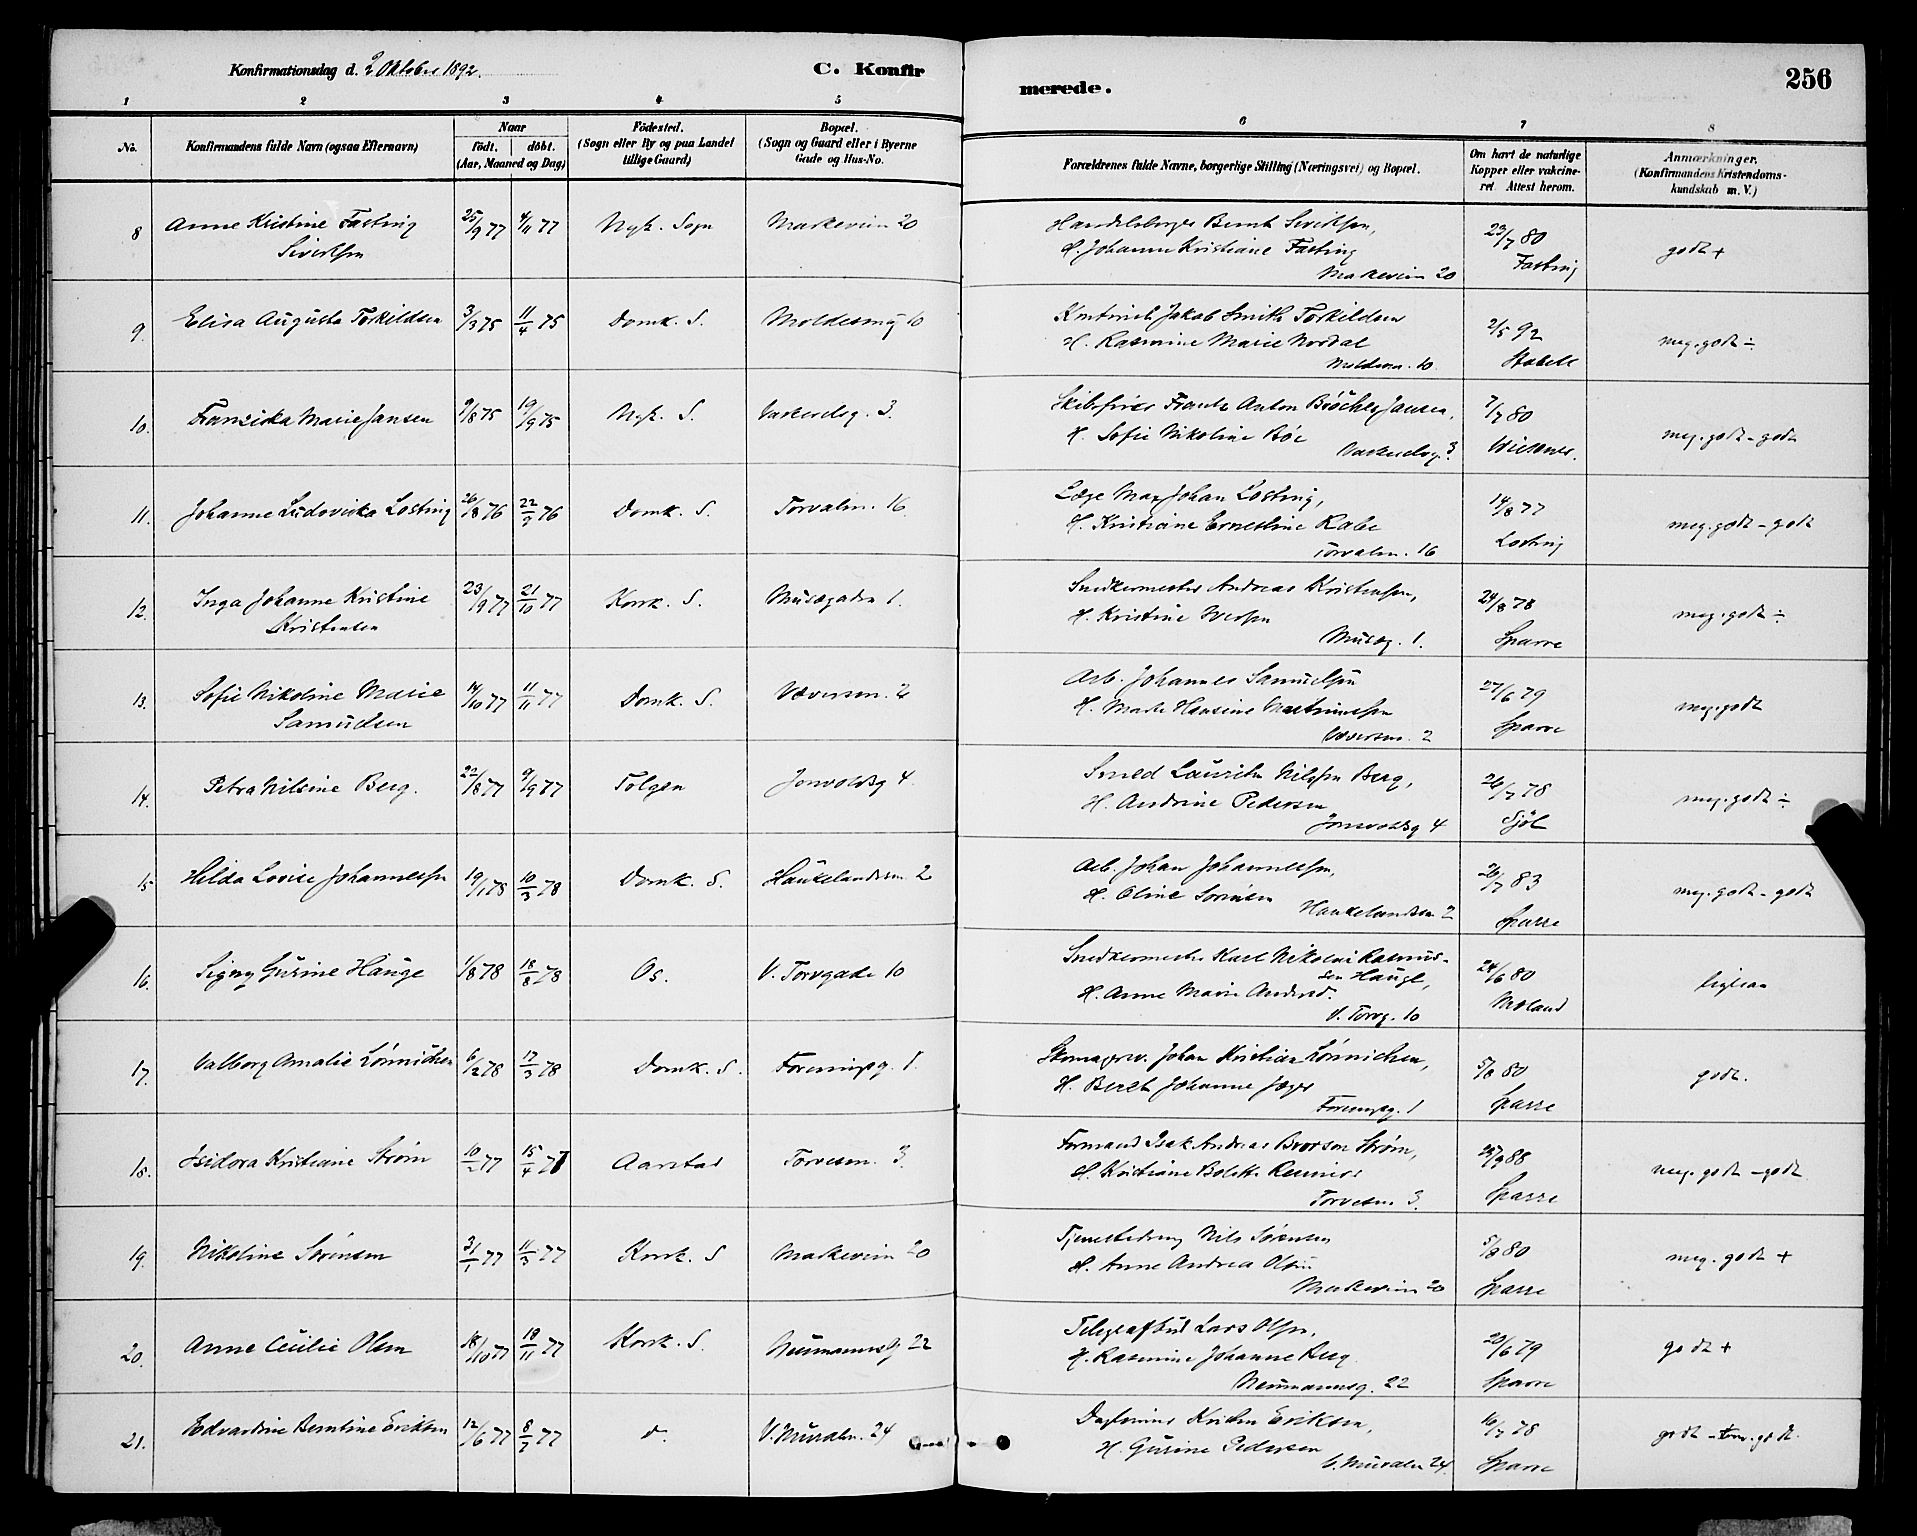 Konfirmationsdag d. 2 Oktober 1892.
C. Konfirmerede.
256
1 2 3 4 5 6 7 8
No.
Konfirmandens fulde Navn (ogsaa Efternavn)
Naar
födt. döbt.
(Aar, Maaned og Dag)
Födested.
(Sogn eller By og paa Landet
tillige Gaard)
Bopæl.
(Sogn og Gaard eller i Byerne
Gade og Hus-No.
Forældrenes fulde Navne, borgerlige Stilling (Næringsvei) og Bopæl.
Om havt de naturlige
Kopper eller vakcine-
ret. Attest herom.
Anmærkninger.
(Konfirmandens Kristendoms-
kundskab m. V.)
8 Anne Kristine Fasting 25/9 77 4/11 77 Nyk. Sogn Markeveien 20 Handelsborger Bernt Sivertsen, 23/7 80 godt +
Sivertsen H. Johanne Kristiane Fasting Fasting
Markeveien 20
9. Elisa Augusta Torkildsen 3/3 75 11/4 75 Domk. S. Moldesmg 10 Jakob Smith Torkildsen 2/5 92 meg. godt ÷
H. Rasmine Marie Nordal Stabell
10
10. Franziska Marie Jansen 9/8 75 19/9 75 Nyk. S. Vaskerelvg. 3. Anton Jansen, 7/7 80 meg. godt - godt
H. Sofie Nikoline Bøe Wiesener.
Vaskerelvg. 3.
11. Johanne Ludovicka Losting 26/8 76 22/9 76 Domk. S. Torvalm. 16 Læge Max Johan Losting, 14/8 77 meg. godt - godt
H. Kristiane Ernestine Rabe Losting
Torvalm. 16
12. Inga Johanne Kristine 23/9 77 21/10 77 Kork. S. Musegaden 1. Snedkermester Andreas Kristensen, 24/8 78 meg. godt ÷
Kristensen H. Kristine Iversen Sparre
Museg. 1.
13. Sofie Nikoline Marie 14/10 77 11/11 77 Domk. S. Væversm. 2 Arb. Johannes Samuelsen 27/6 79 meg. godt
Samuelsen H. Marte Hansine Sparre
Væversm. 2
14. Petra Nilsine Berg. 22/8 77 9/9 77 Tolgen Jonsvoldsg 4. Smed Lauritz Nilssen Berg, 26/7 78 meg. godt ÷
H. Andrine Pedersen
Jonsvoldsg 4
15 Hilda Lovise Johannessen 19/1 78 10/3 78 Domk. S. Haukelandsm. 2 Arb. Johan Johannessen, 26/7 83 meg. godt - godt
H. Oline Sørensen Sparre
Haukelandsm 2
16. Signy Gurine Hauge 1/8 78 18/8 78 Os. V. Torvgade 10 Snedkermester Karl Nikolai Rasmus- 24/6 80
sen Hauge,
H. Anne Marie Andersd.
V. Torvg. 10
17. Valborg Amalie Lönnichen 6/2 78 17/3 78 Domk. S. Foreningsg. 1. Johan Kristian Lönnichen, 5/8 80 godt.
H. Johanne Jæger Sparre
Foreningsg. 1
18. Isidora Kristiane Strøm 10/2 77 15/4 77 Aarstad Torvesm. 3. Formand Isak Andreas Strøm, meg. godt - godt
H. Kristiane Sparre
Torvesm. 3.
19. Nikoline Sørensen 31/1 77 11/3 77 Kork. S Markeveien 20 Nils Sørensen 5/8 80 meg. godt +
H. Anne Andrea Olsen Sparre
Markeveien 20
20. Anne Cecilie Olsen 18/10 77 18/11 77 Kork. S. Neumannsg 22 Telegrafbud Lars Olsen, 20/6 79 godt +
H. Rasmine Johanne Berg. Sparre
Neumannsg. 22
21. Edvardine Berntine Eriksen 12/6 77 8/7 77 d. V. Muralm. 24 Eriksen, 16/7 78 godt - tem. godt.
H. Gurine Pedersen Sparre
V. Muralm 24.